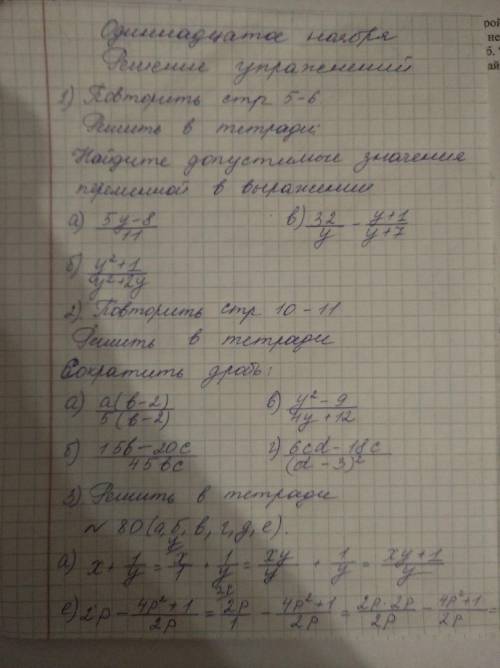 рой
не
б.
ай
Одиннадцатое ноября
Решение упражнений
1) Повторить стр 5-6
Решить в тетради:
Найдите допустимые значение
переменной в выражении
а) (5y-8)/11 в) 32/y - (y+1)/(y+7)
б) (y²+1)/(y²+2y)
2) Повторить стр 10-11
Решить в тетради
Сократить дробь:
а) a(b-2)/5(b-2) в) (y²-9)/(4y+12)
б) (15b-20c)/45bc г) (6cd-18c)/(d-3)²
3) Решить в тетради
№ 80 (а,б, в, г, д, е).
а) x+1/y = x/1 + 1/y = xy/y + 1/y = (xy+1)/y
е) 2p - (4p²+1)/2p = 2p/1 - (4p²+1)/2p = 2p·2p/2p - (4p²+1)/2p =